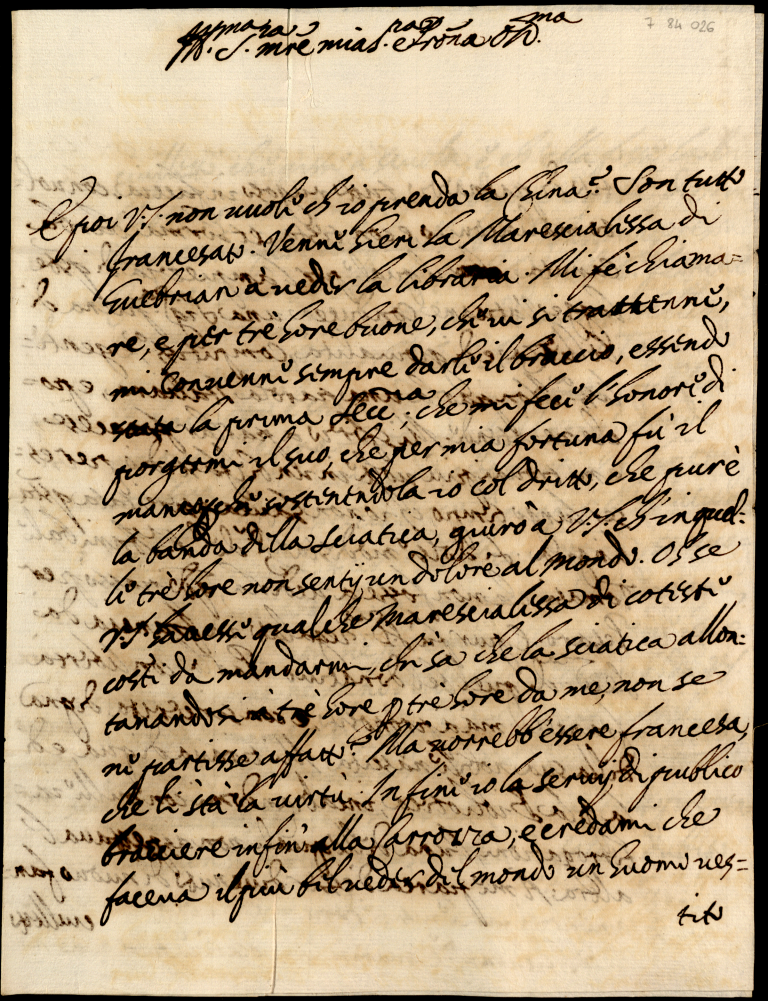 7 84 026
Ill.ma S.ra mre mia S.ra e Prona Oss.ma
E poi V.S. non vuole ch'io prenda la China? Son tutto
francesato. Venne hieri la Marescialissa di
Guebrian à veder la libraria. Mi fè chiama=
re, e per tre hore buone, che vi si trattenne,
mi convenne sempre darle il braccio, essendo
stata la prima lecc.a, che mi fece l'honore di
porgermi il suo, che per mia fortuna fù il
manco, sostenendola io col dritto, che pur è
la banda della sciatica, giuro à V.S. ch'in quel-
le trè hore non sentij un dolore al mondo. Oh se
V.S. havesse qualche Marescialissa di coteste
costì da mandarmi, chi sa che la sciatica allon-
tanandosi à trè hore p trè hore da me, non se
ne partisse affatto? Ma vorrebb'essere francesa,
che lì stà la virtù. Infine io la servij di publico
bracciere infin'alla Carrozza, e credami che
faceva il più bel veder del mondo un huomo ves=
tito